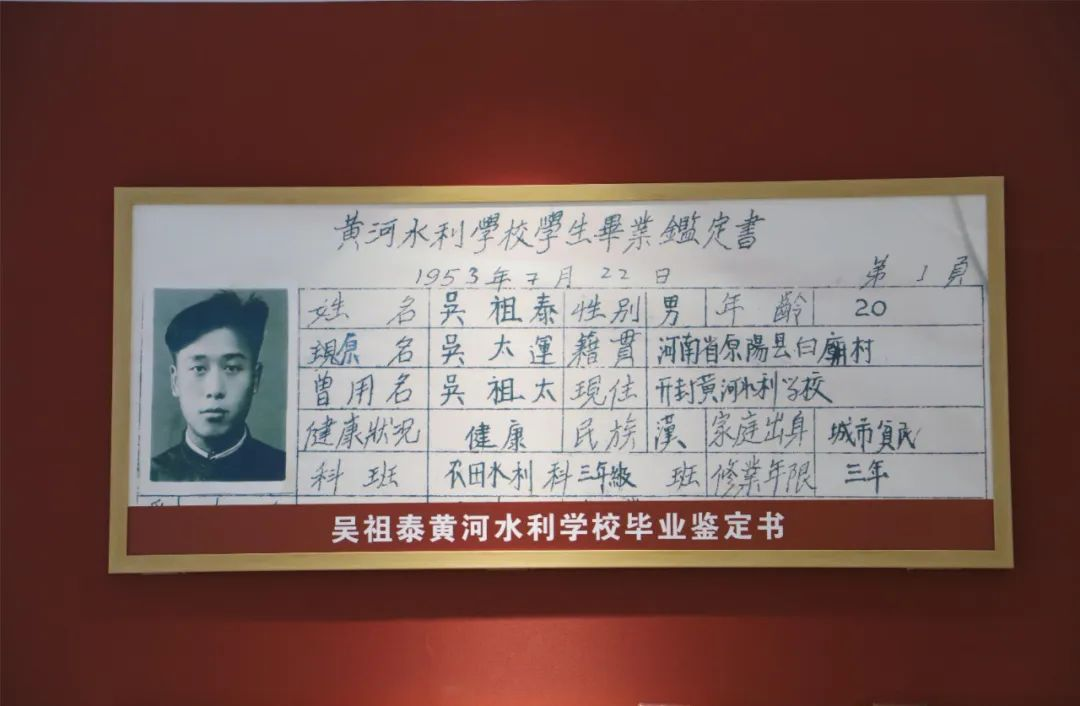 黄河水利學校學生畢業鑑定書
1953年7月22日
第1頁
姓名 吳祖泰 性別 男 年齡 20
現原名 吳太運 籍貫 河南省原陽縣白廟村
曾用名 吳祖太 現住 开封黄河水利学校
健康狀況 健康 民族 漢 家庭出身 城市貧民
科班 农田水利科三年級班 修業年限 三年
吴祖泰黄河水利学校毕业鉴定书